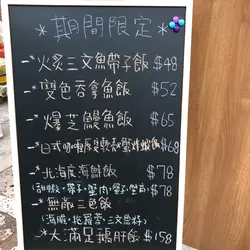 *期間限定*
-*火炙三文魚帶子飯 $48
-*雙色吞拿魚飯 $52
-*爆芝鰻魚飯 $65
-*日式咖喱 $68
-*北海魚海鮮飯 $78
(甜蝦、帶子、蟹肉、蟹子、蟹膏) $78
-*無敵三色飯
(海膽、拖羅蓉、三文魚籽)
-*大滿足鵝肝飯 $158